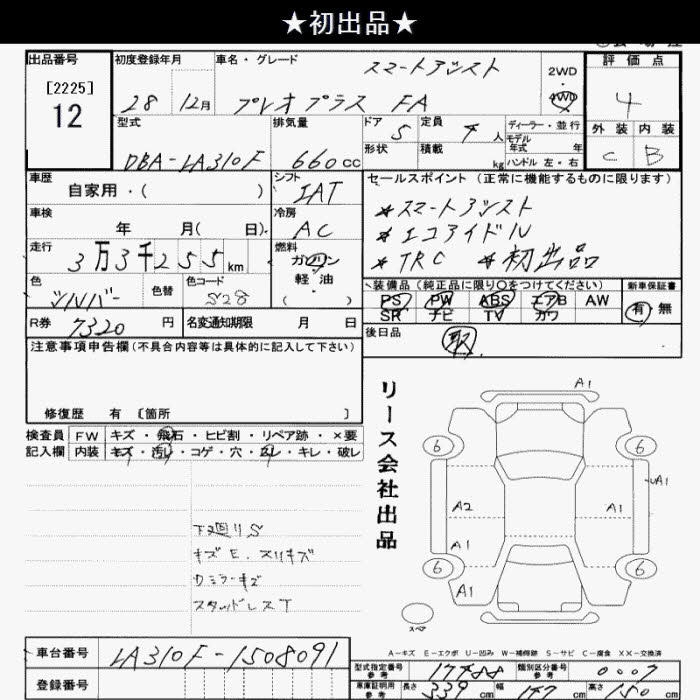 ★初出品★
出品番号 初度登録年月 車名・グレード スマートアシスト 2WD 評価点
[2225] 12 28 12月 プレオプラス FA 4WD 4
型式 排気量 ドア 5 定員 4 人 ディーラー・並行 外装 内装
モデル年式 年
DBA-LA310F 660 CC 形状 積載 kg ハンドル 左・右 C B
車歴 シフト セールスポイント (正常に機能するものに限ります)
自家用・( ) IAT
車検 冷房 ★スマートアシスト
年 月( 日) AC ★エコアイドル
走行 燃料 ★TRC ★初出品
3万3千255km ガソリン
色 色替 色コード 軽油 装備品 (純正品に限り○をつけてください) 新車保証書
シルバー S28 ( ・ ) PS PW ABS エアB AW 有・無
SR ナビ TV カワ
R券 7320 円 名変通知期限 月 日 後日品 取
注意事項申告欄 (不具合内容等は具体的に記入して下さい)
修復歴 有 〔箇所 〕
検査員 FW キズ・飛石・ヒビ割・リペア跡・×要
記入欄 内装 キズ・汚レ・コゲ・穴・スレ・キレ・破レ
リース会社出品
A1
6 6
A1
A2 A1
A1
6 6
A1
スペア
下廻りS
キズE、スリキズ
Rミラーキズ
スタッドレスT
A-キズ E-エクボ U-凹み W-補修跡 S-サビ C-腐食 XX-交換済
車台番号 LA310F-1508091
型式指定番号 参考 17488 類別区分番号 参考 0007
登録番号
車庫証明用 参考 長さ 339 cm 幅 147 cm 高さ 150 cm